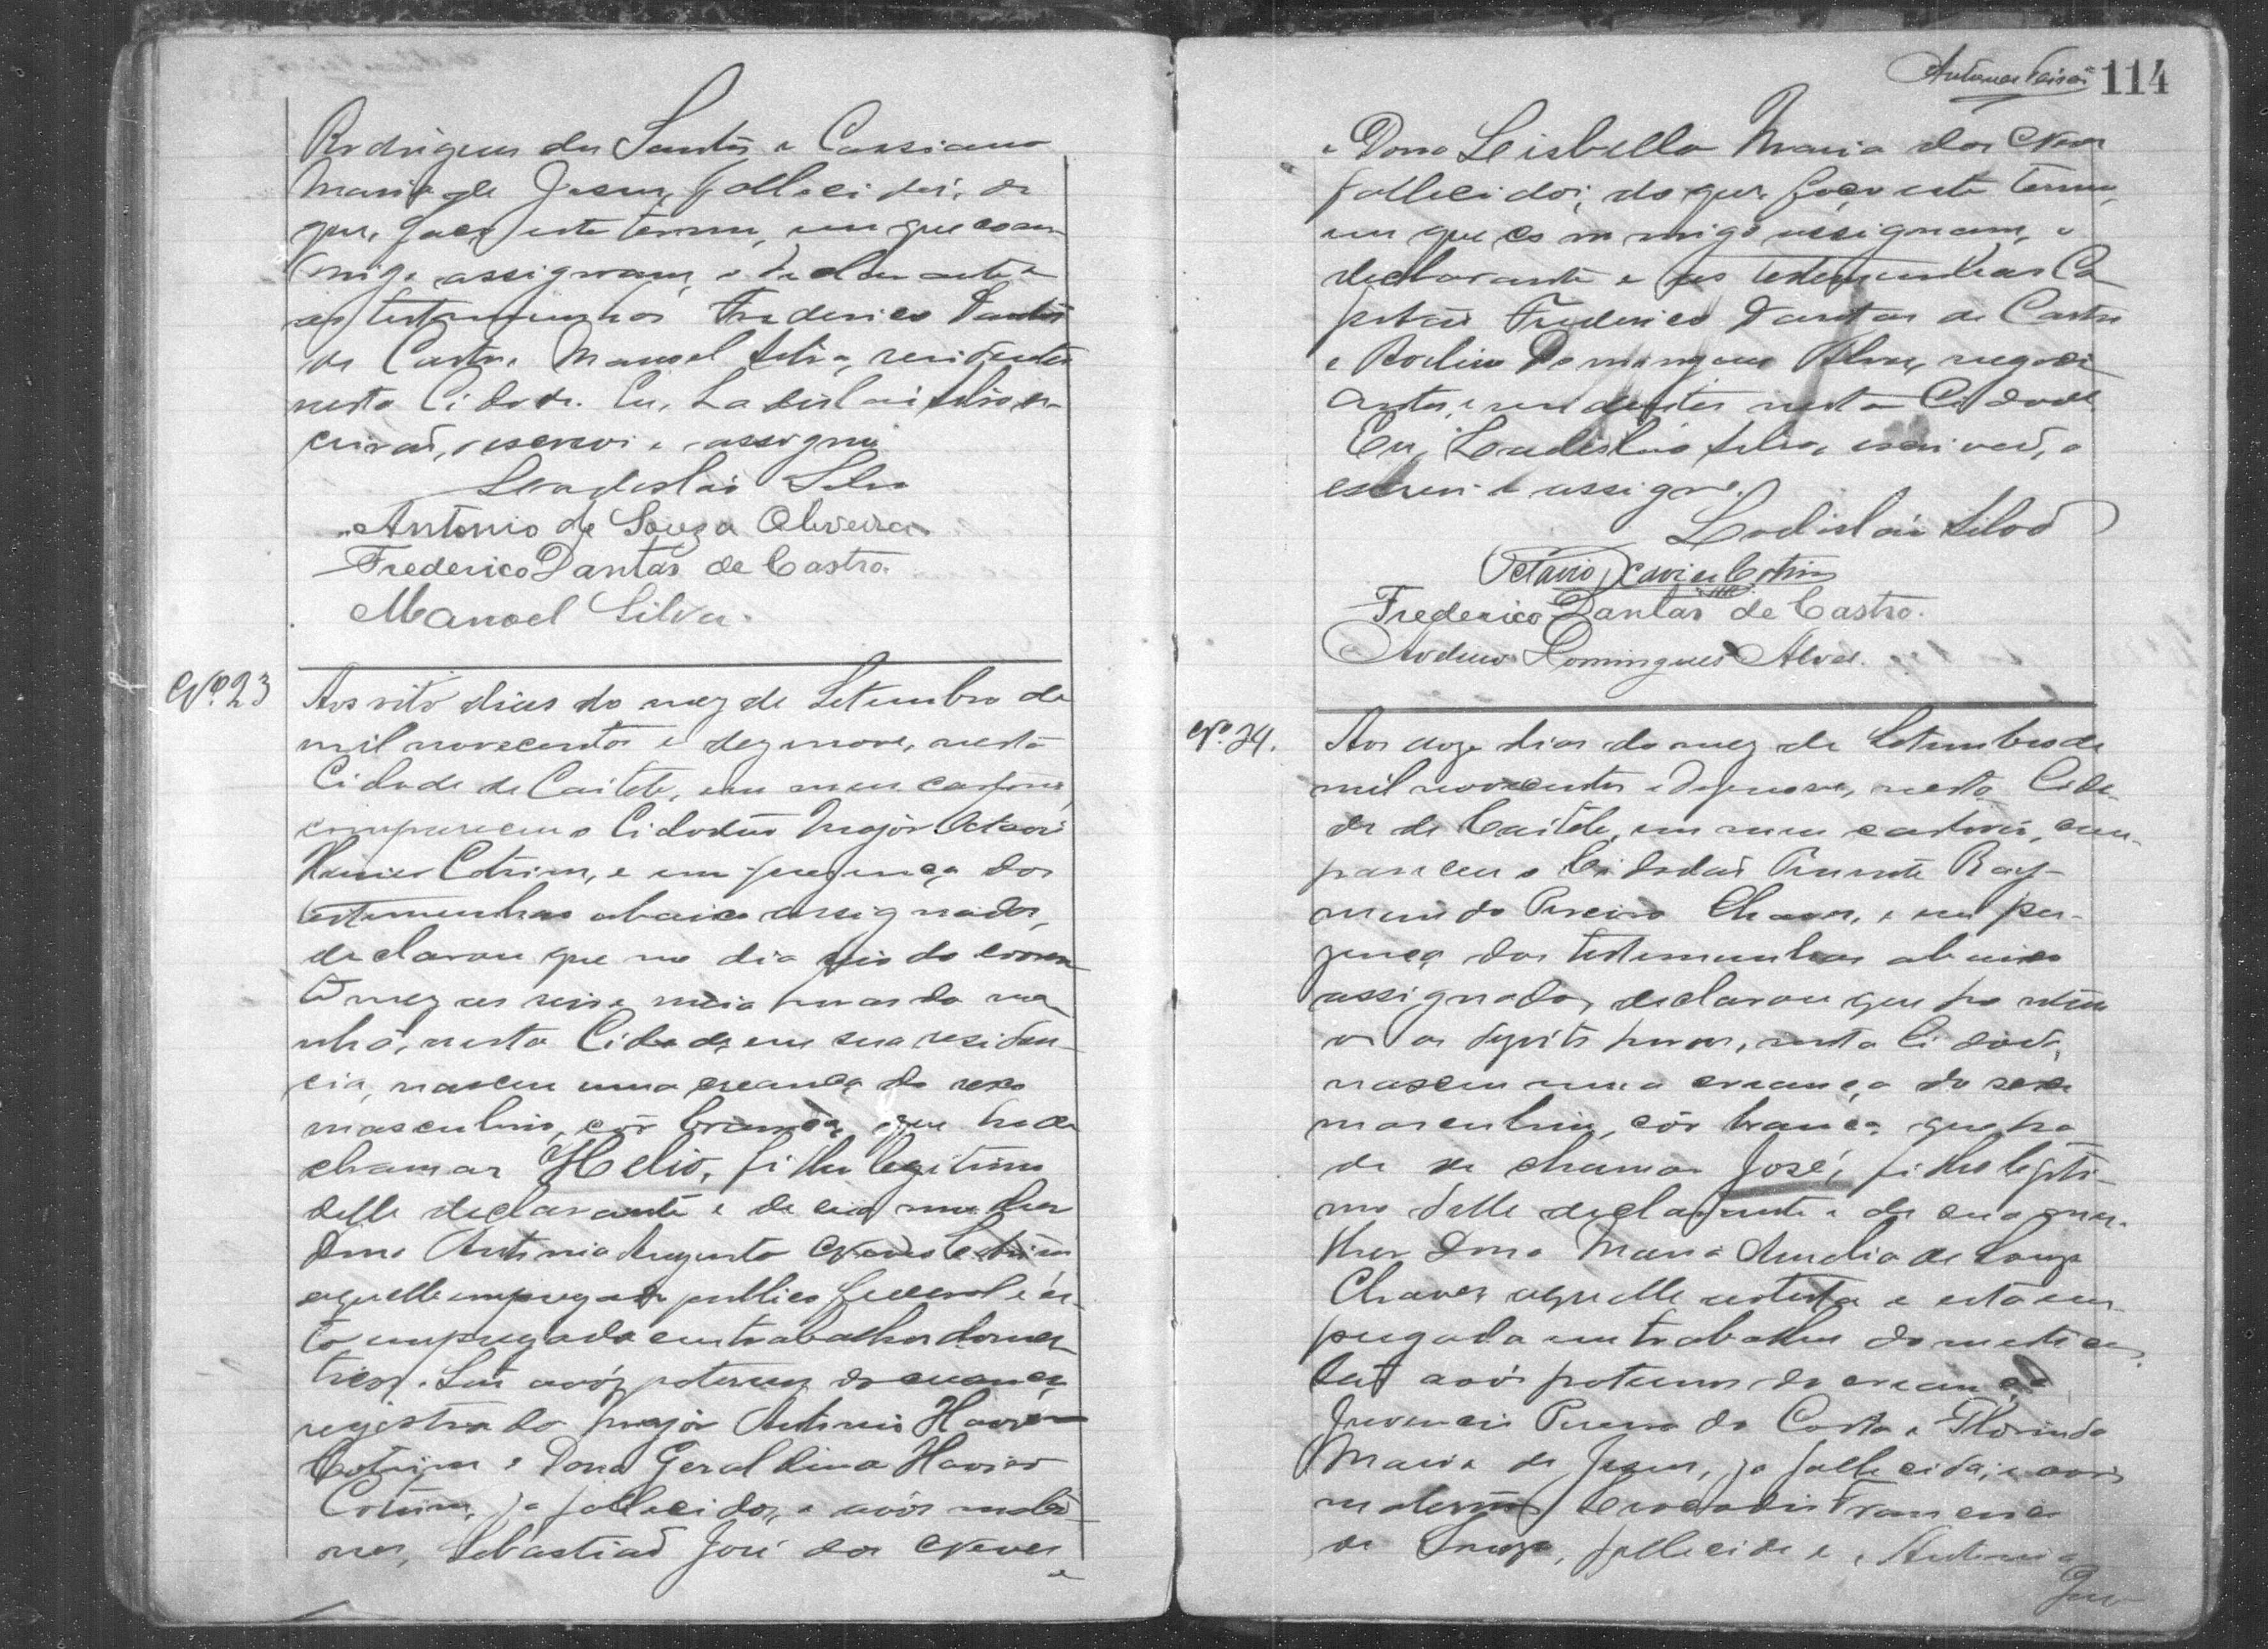 Rodrigues dos Santos e Cassiana
Maria de Jesus, fallecidos; do
que, faço este termo, em que com-
migo assignam, o declarante e
as testemunhas Frederico Dantas
de Castro e Manoel Silva, residentes
nesta Cidade. Eu, Ladislau Silva es-
crivão, o escrevi e assigno
Ladislau Silva
Antonio de Souza Oliveira
Frederico Dantas de Castro.
Manoel Silva.
Nº 23
Aos oito dias do mez de Setembro de
mil novecentos e dezenove, nesta
Cidade de Caiteté, em meu cartorio,
compareceu o Cidadão Major Octavio
Xavier Cotrim, e em presença das
testemunhas abaixo assignadas,
declarou que no dia seis do corren-
te mez as seis e meia horas da ma-
nhã, nesta Cidade, em sua residen-
cia, nasceu uma creança do sexo
masculino, côr branca, que ha de
chamar Helio, filho legitimo
delle declarante e de sua mulher
Dona Antonia Augusta Neves Cotrim,
aquelle empregado publico federal e es-
ta empregada em trabalhos domes-
ticos. São avós paternos da creança
registrada Major Antonio Xavier
Cotrim e Dona Geraldina Xavier
Cotrim, ja fallecidos, e avós mater-
nos, Sebastião José das Neves
e
114
e Dona Leisbella Maria das Neves
fallecidos; do que faço este termo,
em que commigo assignam, o
declarante e as testemunhas Ca-
pitão Frederico Dantas de Castro
e Domingues Alves, negoci-
antes, e residentes nesta Cidade
Eu, Ladislau Silva, escrivão, o
escrevi e assigno.
Ladislau Silva
Octavio Xavier Cotrim
Frederico Dantas de Castro.
Domingues Alves.
Nº 24.
Aos doze dias do mez de Setembro de
mil novecentos e dezenove, nesta Cida-
de de Caiteté, em meu cartorio, com-
pareceu o Cidadão Tenente Ray-
mundo Pereira Chaves, e em pre-
zença das testemunhas abaixo
assignadas, declarou que
as dezoito horas, nesta Cidade,
nasceu uma creança do sexo
masculino, côr branca, que ha
de se chamar José, filho legiti-
mo delle declarante e de sua mu-
lher Dona Maria Amelia de Souza
Chaves aquelle artista e esta em-
pregada em trabalhos domesticos.
São avós paternos da creança
Juvencio Pereira da Costa e Florinda
Maria de Jesus, ja fallecida; e avós
maternos Leocadio Francisco
de Souza, fallecido e Antonia